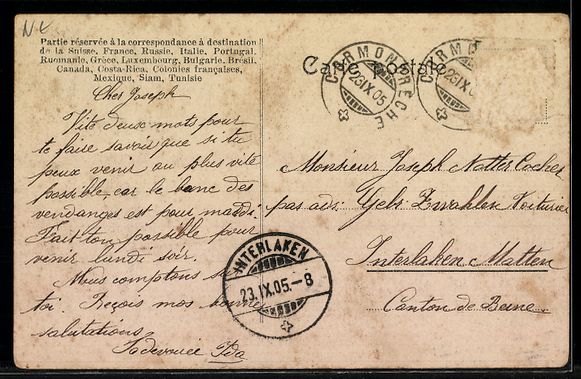 NL
Partie réservée à la correspondance à destination
de la Suisse, France, Russie, Italie, Portugal,
Roumanie, Grèce, Luxembourg, Bulgarie, Brésil,
Canada, Costa-Rica, Colonies françaises,
Mexique, Siam, Tunisie
Carte postale
CORMONDRÈCHE
23 IX 05
CORMO
23 IX
Cher Joseph
Vite deux mots pour
te faire savoir que si tu
peux venir au plus vite
possible, car le banc des
vendanges est pour mardi.
Fait ton possible pour
venir lundi soir.
Nous comptons s
toi. Reçois mos bonne
salutations
Ta devouée Ida
Monsieur Joseph Natter Cocher
pas adr: Gebr Zwahlen Voiturier
Interlaken Matten
Canton de Berne
INTERLAKEN
23.IX.05.-8